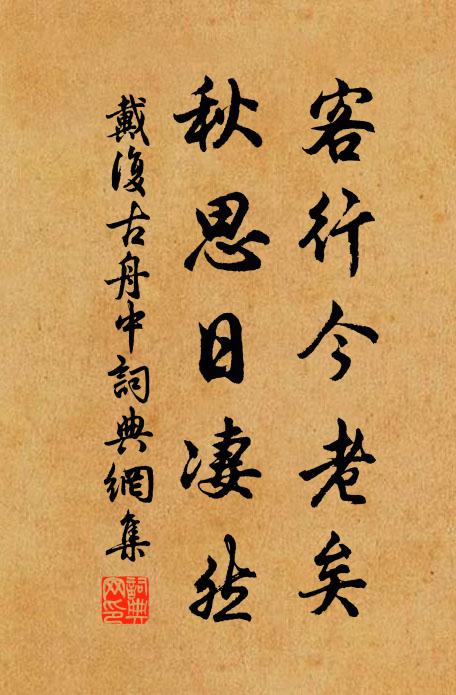 客行今老矣
秋思日凄然
戴復古舟中詞典網集
詞典網印